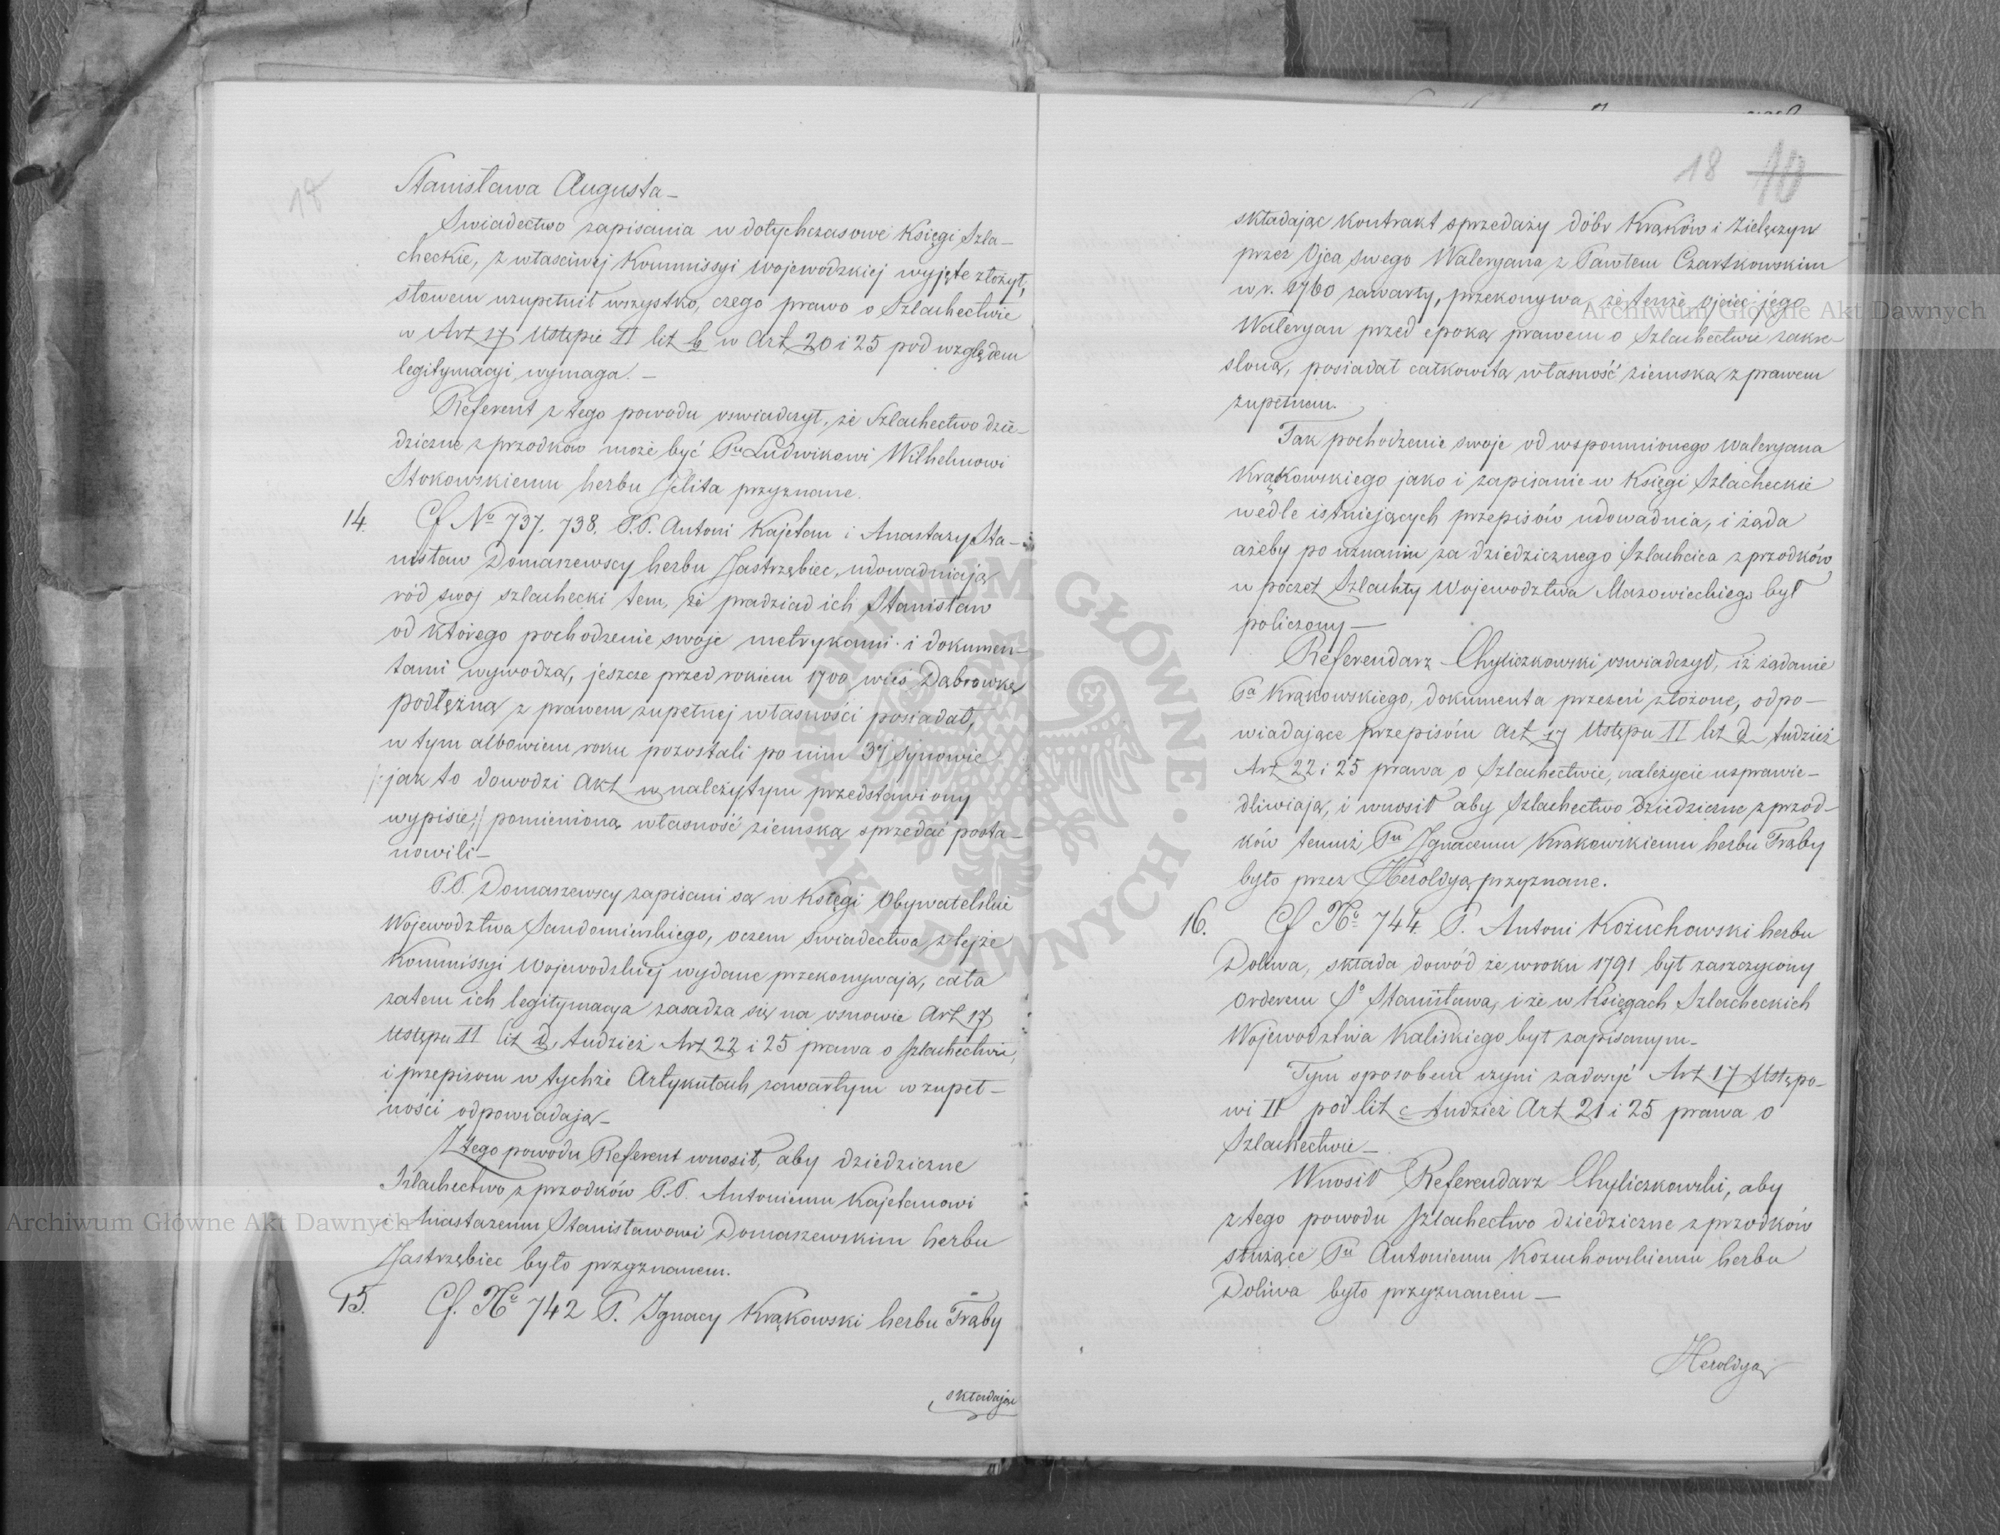 Stanisława Augusta_
Swiadectwo zapisania w dotychczasowe Księgi Szla-
checkie, z właściwéj Kommissyi Wojewodzkiéj wyjęte złożył,
słowem uzupełnił wszystko, czego prawo o Szlachectwie
w Art 17 Ustępie II lit b w Art 20 i 25 pod względem
legitymacyi wymaga. _
Referent z tego powodu oswiadczył, że Szlachectwo dzie-
dziczne z przodków może być Pu Ludwikowi Wilhelmowi
Stokowskiemu herbu Jelita przyznane.
14. Cf No 737. 738. P.P. Antoni Kajetan i Anastazy Sta-
nisław Domaszewscy herbu Jastrzębiec, udowadniają
ród swój szlachecki tem, że pradziad ich Stanisław
od którego pochodzenie swoje metrykami i dokumen-
tami wywodzą, jeszcze przed rokiem 1700 wieś Dąbrowkę
podłężną z prawem zupełnéj własności posiadał,
w tym albowiem roku pozostali po nim synowie
/:jak to dowodzi Akt w należytym przedstawiony
wypisie,:/ pomienioną własność ziemską sprzedać posta-
nowili_
P.P. Domaszewscy zapisani są w Księgi Obywatelskie
Województwa Sandomirskiego, oczem świadectwa z tejże
Kommissyi Wojewodzkiéj wydane przekonywają, cała
zatem ich legitymacya zasadza się na osnowie Art 17
Ustępu II lit d, tudzież Art 22 i 25 prawa o Szlachectwie,
i przepisom w tychże Artykułach zawartym w zupeł-
ności odpowiadają_
Z tego powodu Referent wnosił, aby dziedziczne
Szlachectwo z przodków P.P. Antoniemu Kajetanowi
i Anastazemu Stanisławowi Domaszewskim herbu
Jastrzębiec było przyznanem.
15. Cf. No 742 P. Ignacy Krąkowski herbu Trąby
składając
18
18 10
składając kontrakt sprzedaży dóbr Krąków i Zielęczyn
przez Ojca swego Waleryana z Pawłem Czartkowskim
w r. 1760 zawarty, przekonywa, że tenże ojciec jego
Waleryan przed epoką prawem o Szlachectwie zakre-
śloną, posiadał całkowitą własność ziemską z prawem
zupełnem.
Tak pochodzenie swoje od wspomnionego Waleryana
Krąkowskiego jako i zapisanie w Księgi Szlacheckie
wedle istniejących przepisów udowadnia, i żąda
ażeby po uznaniu za dziedzicznego Szlachcica z przodków
w poczet Szlachty Województwa Mazowieckiego był
policzony_
Referendarz Chyliczkowski oswiadczył, iż żądanie
Pa Krąkowskiego, dokumenta przezeń złożone, odpo-
wiadające przepisóm Art 17 Ustępu II lit d tudzież
Art 22 i 25 prawa o Szlachectwie, należycie usprawie-
dliwiają, i wnosił aby Szlachectwo Dziedziczne z przod-
ków temuż Pu Ignacemu Krąkowskiemu herbu Trąby
było przez Heroldyą przyznane.
16. Cf No 744 P. Antoni Kożuchowski herbu
Doliwa, składa dowód że w roku 1791 był zaszczycony
Orderem So Stanisława, i że w Księgach Szlacheckich
Województwa Kaliskiego był zapisanym_
Tym sposobem czyni zadosyć Art 17 Ustępo-
wi II pod lit c tudzież Art 21 i 25 prawa o
Szlachectwie_
Wnosił Referendarz Chyliczkowski, aby
z tego powodu Szlachectwo dziedziczne z przodków
służące Pu Antoniemu Kożuchowskiemu herbu
Doliwa było przyznanem_
Heroldya
Archiwum Główne Akt Dawnych
Archiwum Główne Akt Dawnych
ARCHIWUM GŁÓWNE · AKT DAWNYCH ·